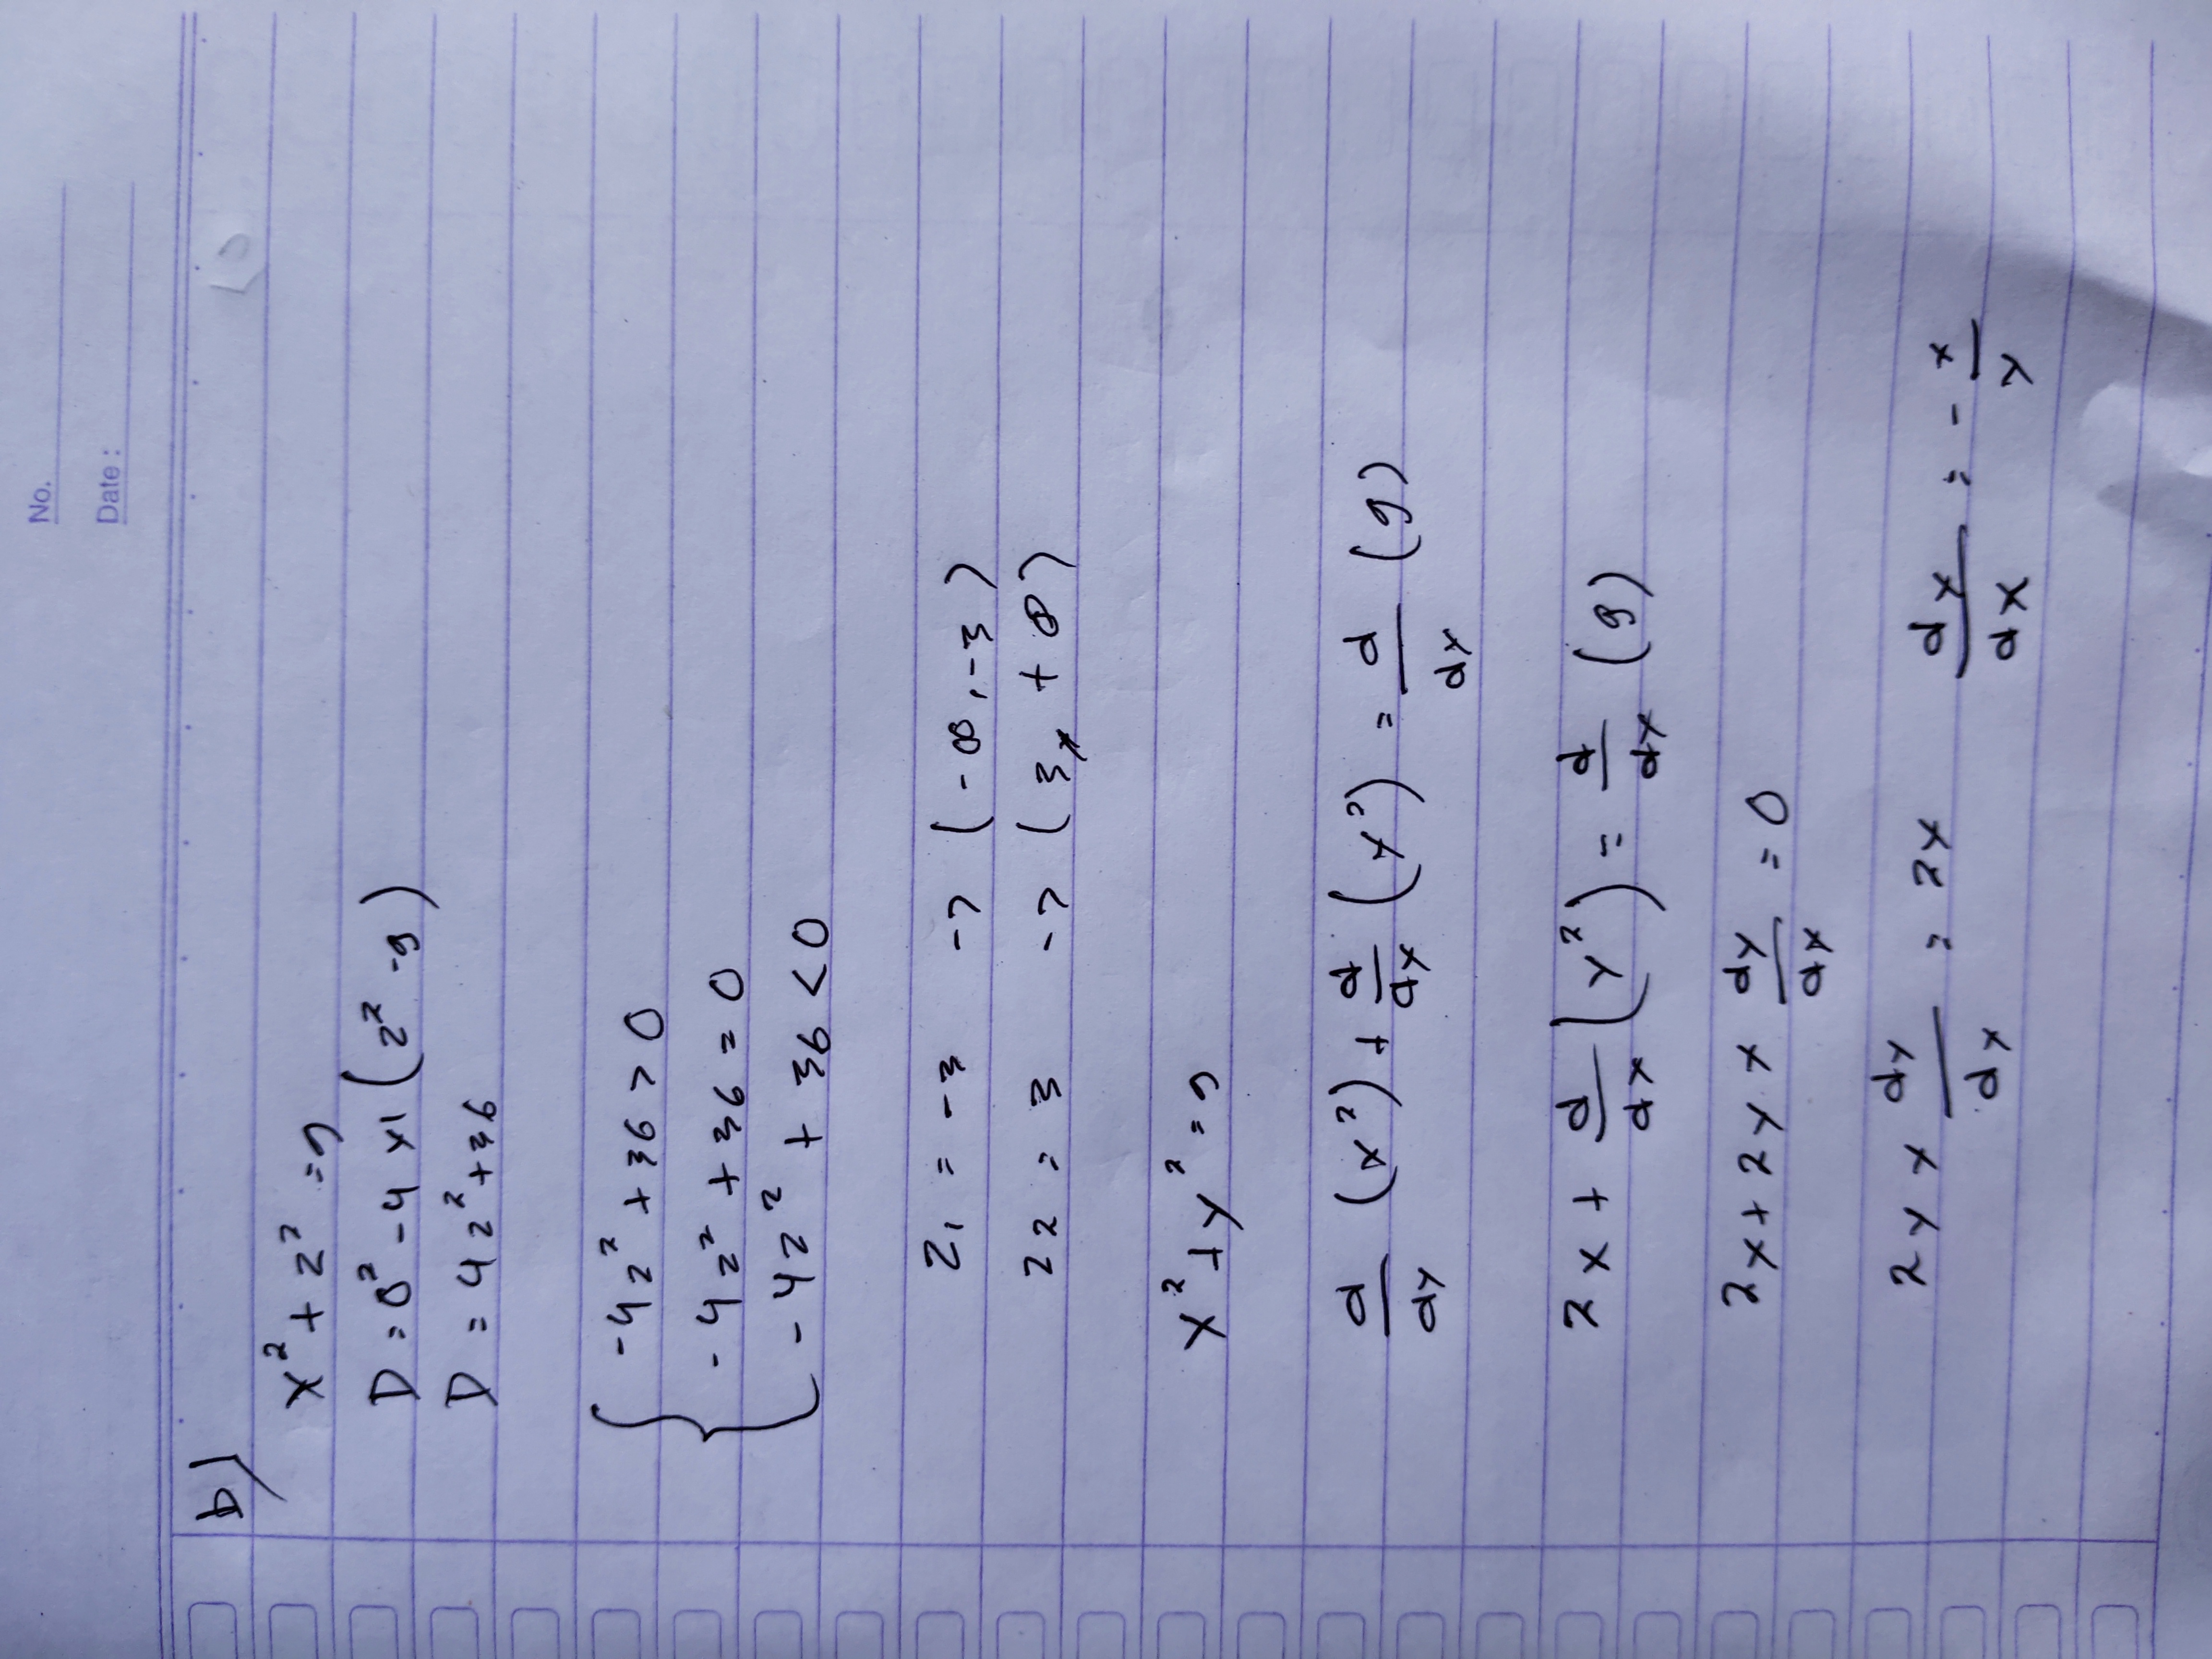 No.
Date :
b)
x² + z² = 9
D = 0² - 4 x 1 (z² - 9)
D = 4z² + 36
-4z² + 36 > 0
-4z² + 36 = 0
-4z² + 36 < 0
z₁ = -3 -> (-∞, -3)
z2 = 3 -> (3, +∞)
x² + y² = 9
d/dy (x²) + d/dx (y²) = d/dx (9)
2x + d/dx (y²) = d/dx (9)
2x + 2y x dy/dx = 0
2y x dy/dx = 2x dy/dx = - x/y